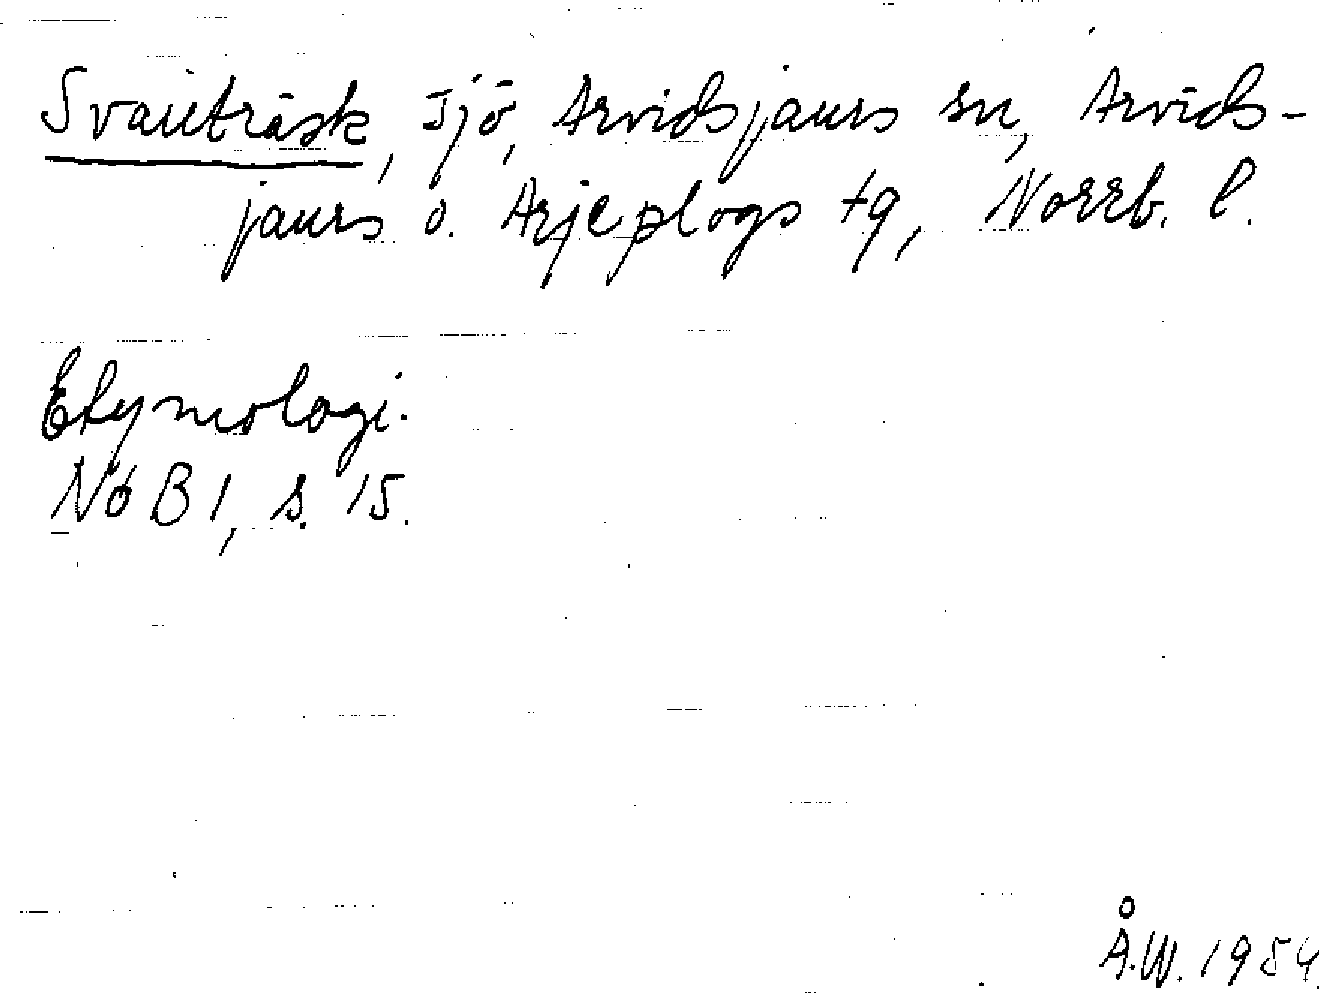 Svaiträsk, sjö, Arvidsjaurs sn, Arvids-
jaurs o. Arjeplogs tg, Norrb. l.
Etymologi.
NoB 1, s. 15.
Å.W. 1954.